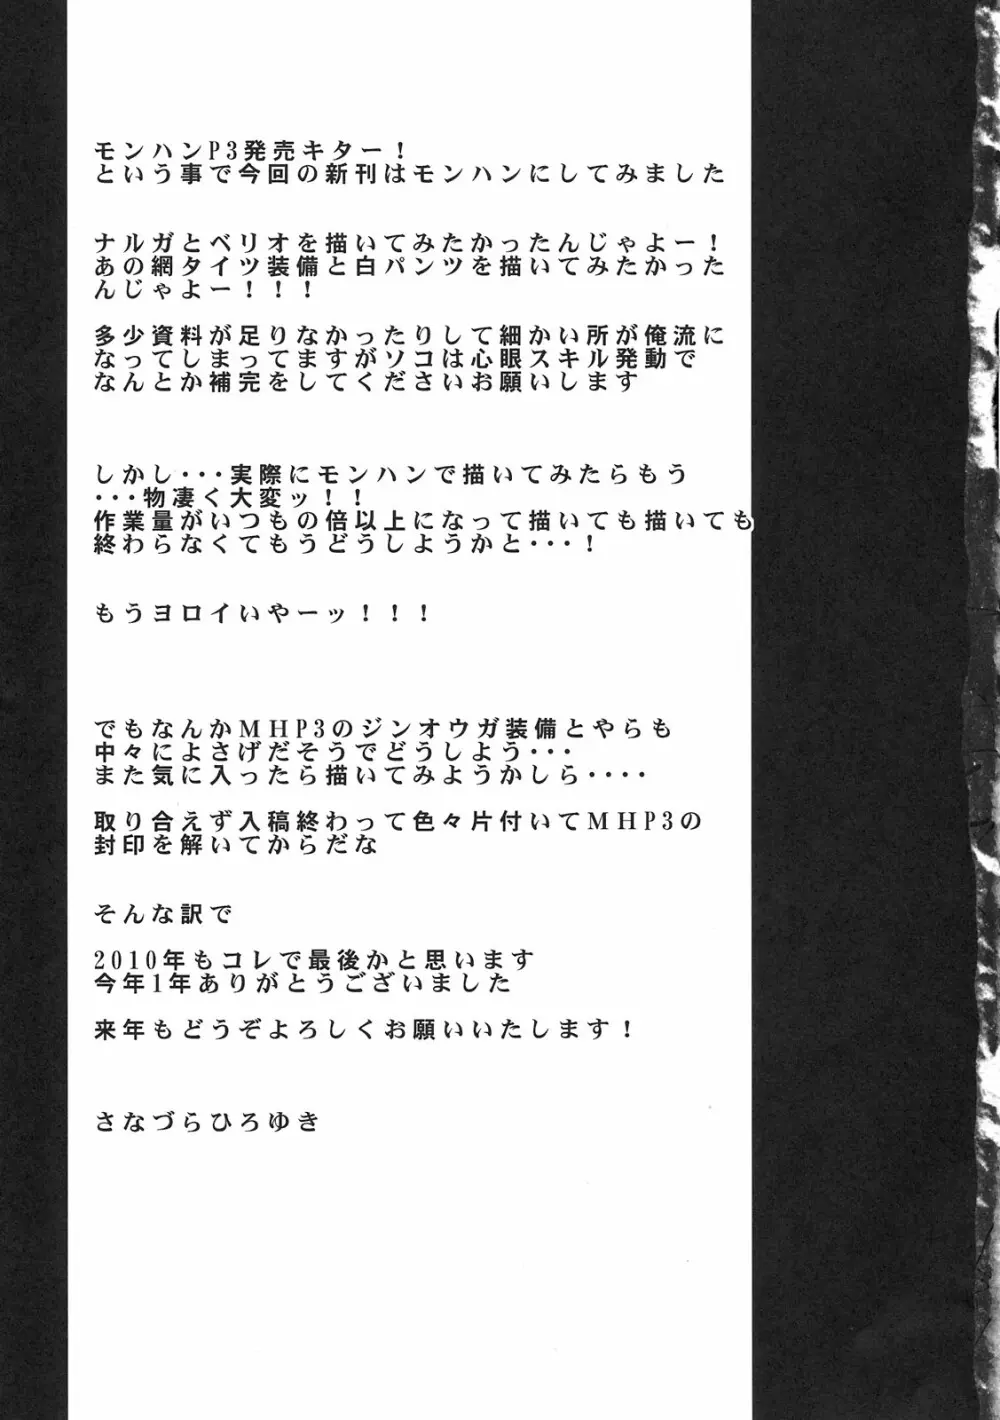 モンハンP3発売キター！
という事で今回の新刊はモンハンにしてみました
ナルガとベリオを描いてみたかったんじゃよー！
あの網タイツ装備と白パンツを描いてみたかった
んじゃよー！！！
多少資料が足りなかったりして細かい所が俺流に
なってしまってますがソコは心眼スキル発動で
なんとか補完をしてくださいお願いします
しかし・・・実際にモンハンで描いてみたらもう
・・・物凄く大変ッ！！
作業量がいつもの倍以上になって描いても描いても
終わらなくてもうどうしようかと・・・！
もうヨロイいやーッ！！！
でもなんかMHP3のジンオウガ装備とやらも
中々によさげだそうでどうしよう・・・
また気に入ったら描いてみようかしら・・・・
取り合えず入稿終わって色々片付いてMHP3の
封印を解いてからだな
そんな訳で
2010年もコレで最後かと思います
今年1年ありがとうございました
来年もどうぞよろしくお願いいたします！
さなづらひろゆき